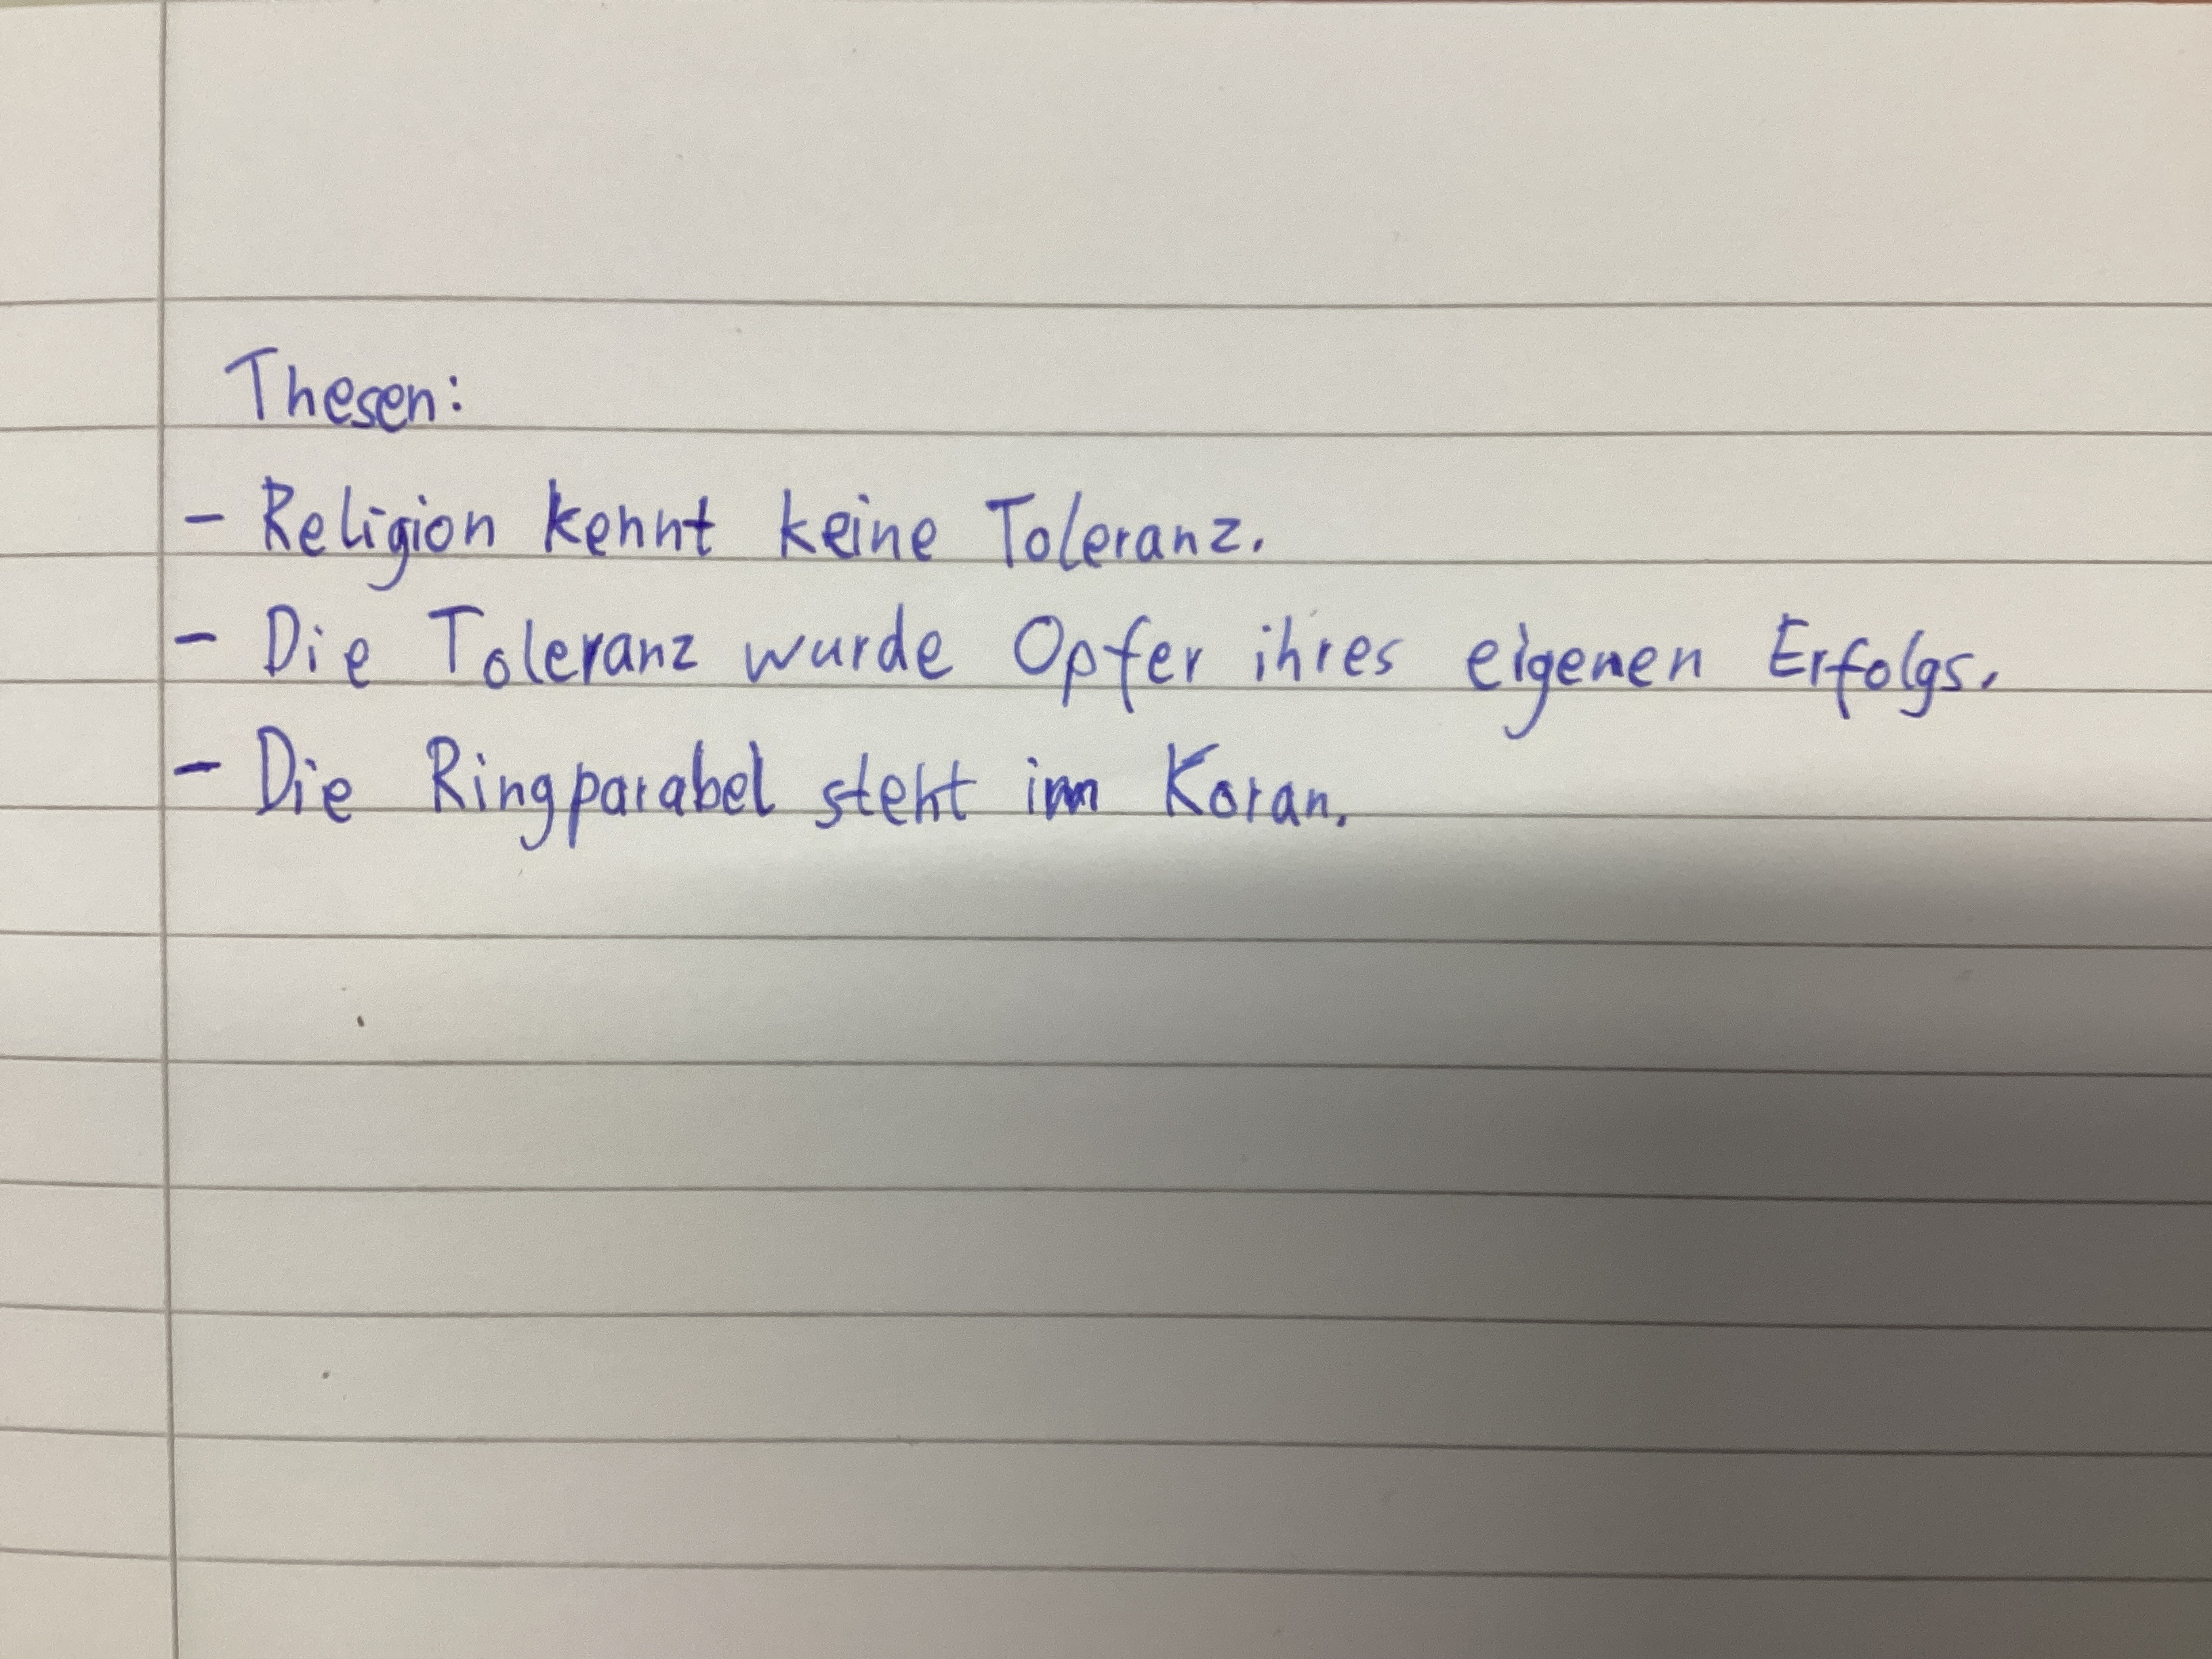 Thesen:
- Religion kennt keine Toleranz.
- Die Toleranz wurde Opfer ihres eigenen Erfolgs.
- Die Ringparabel steht im Koran.